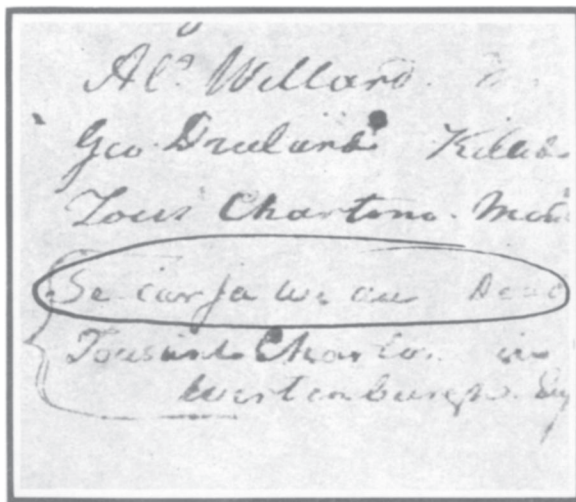 Alˣ Willard
Geo Drulard Killed
Tous Charbono
Se car ja we au Dead
Tousant Charbon in
Wertenburgh. Gy